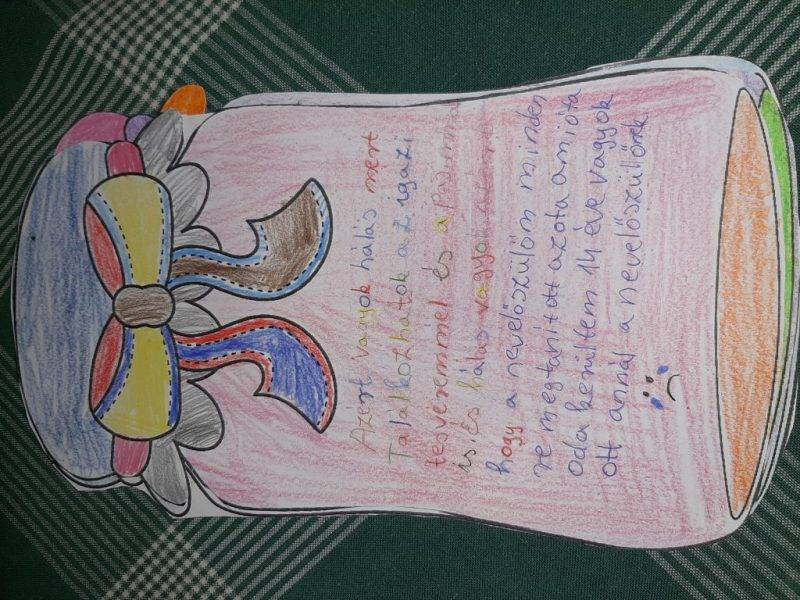 Azért vagyok hálás mert
Találkozhatok az igazi
tesvéremmel és a
is. és hálás vagyok
hogy a nevelőszülőm minden
re megtanított azota amióta
Oda kerültem 14 éve vagyok
ott annál a nevelőszüllőnék